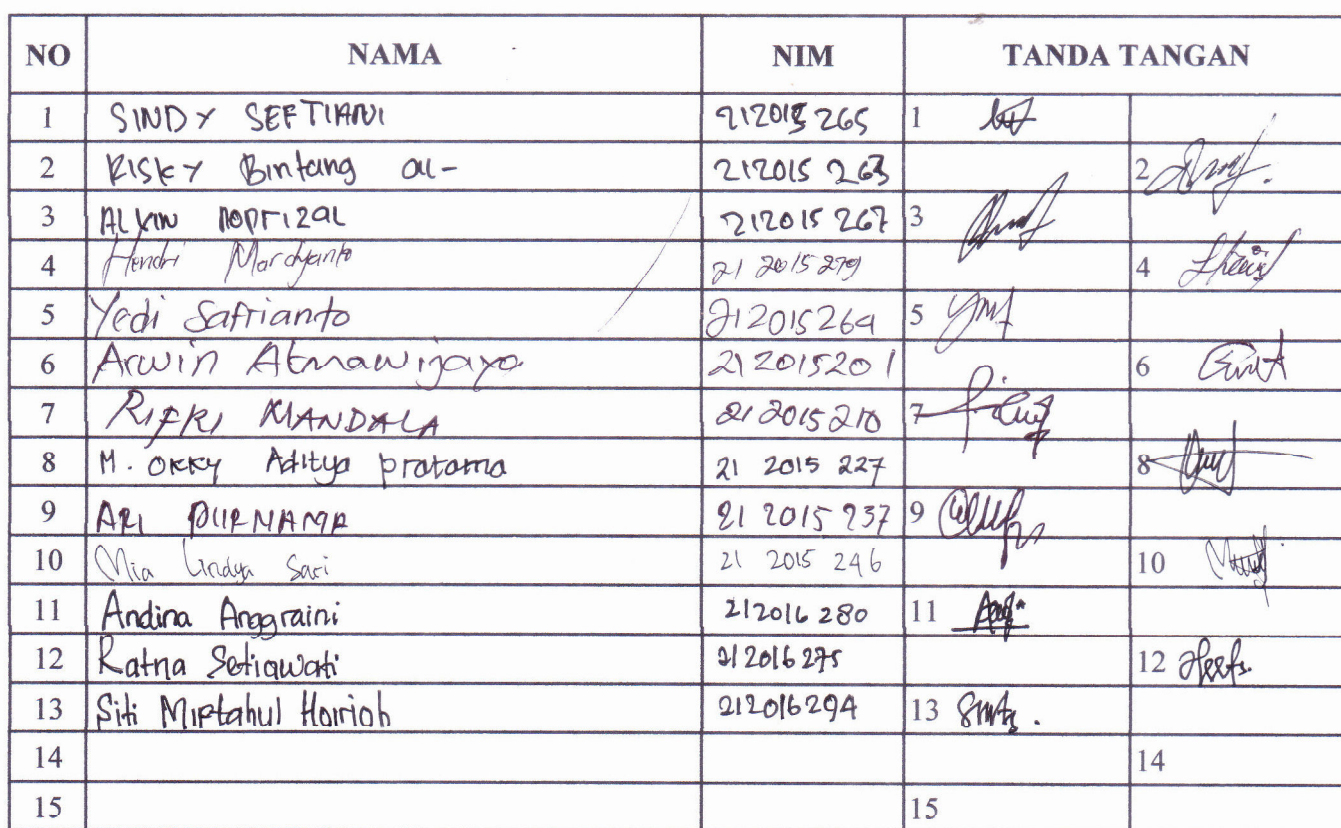 NO NAMA NIM TANDA TANGAN
1 SINDY SEFTIANI 212015265 1
2 RISKY Bintang al- 212015 263 2
3 ALKIN NOPRIZAL 212015 267 3
4 Hendri Mardyanto 21 2015 279 4
5 Yedi Safrianto 212015264 5
6 Arwin Atmawijaya 212015201 6
7 RIFKI MANDALA 21 2015210 7
8 M. OKKY Aditya pratama 21 2015 227 8
9 ARI PURNAMA 21 2015 237 9
10 Mia Lindya Sari 21 2015 246 10
11 Andina Anggraini 212016 280 11
12 Ratna Setiawati 212016275 12
13 Siti Miftahul Hoiriah 212016294 13
14 14
15 15